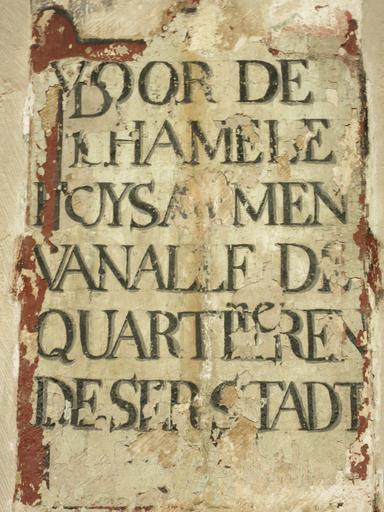 VOOR DE
SCHAMELE
HUYSARMEN
VAN ALLE DE
QUARTIEREN
DESER STADT